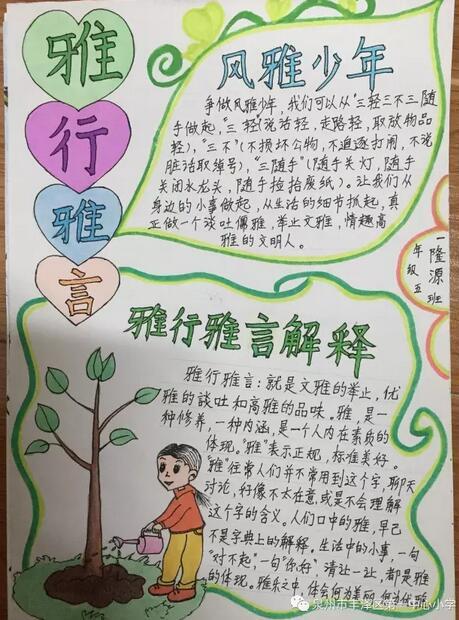 雅
行
雅
言
风雅少年
争做风雅少年，我们可以从"三轻三不三随
手做起，"三轻"(说话轻，走路轻，取放物品
轻)，"三不"(不损坏公物，不追逐打闹，不说
脏话取绰号)，"三随手"(随手关灯，随手
关闭水龙头，随手捡拾废纸)。让我们从
身边的小事做起，从生活的细节抓起，真
正做一个谈吐儒雅，举止文雅，情趣高
雅的文明人。
一年级五班
隆源
雅行雅言解释
雅行雅言：就是文雅的举止，优
雅的谈吐和高雅的品味。雅，是一
种修养，一种内涵，是一个人内在素质的
体现。"雅"表示正规，标准美好。
雅往常人们并不常用到这个字，聊天
讨论，好像不太在意，或是不会理解
这个字的含义。人们口中的雅，早已
不是字典上的解释。生活中的小事，一句
"对不起"，一句"你好"请让一让，都是雅
的体现。雅乐之中，体会何为美丽
泉州市丰泽区第一中心小学